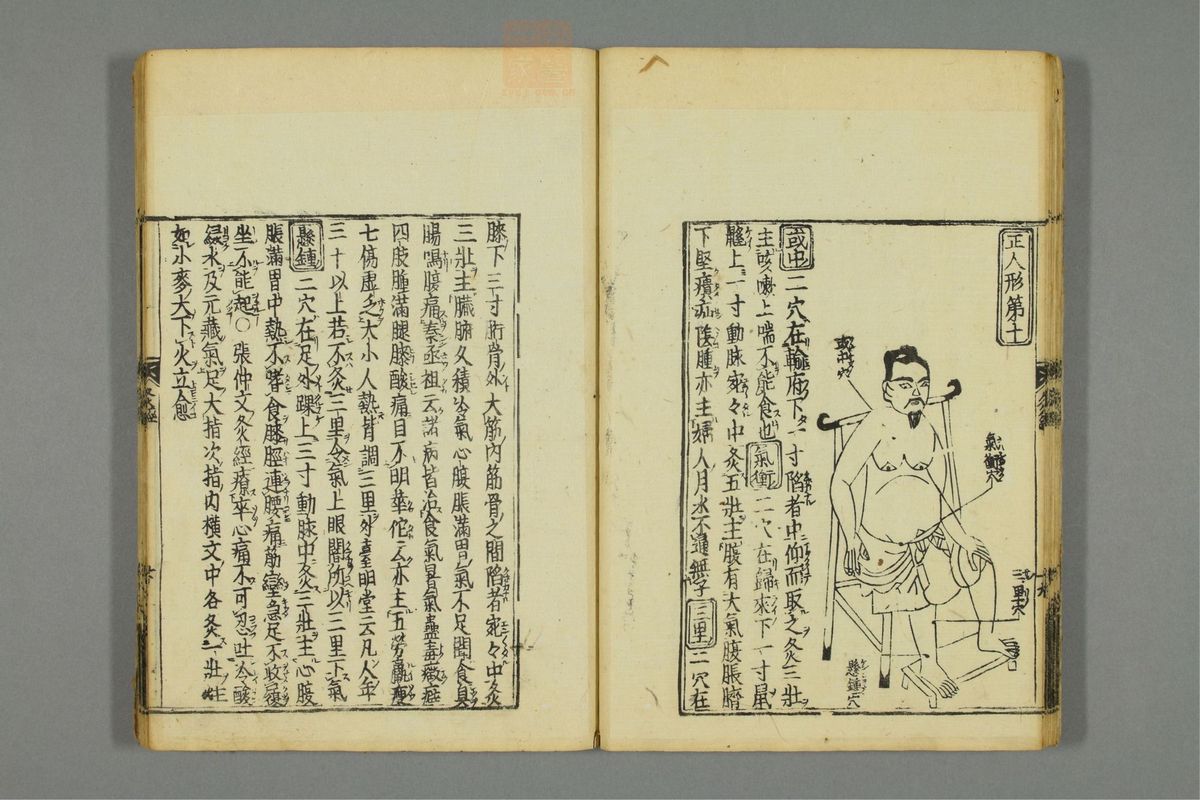 正人形第十
或中穴
氣衝穴
三里穴
懸鍾穴
或中 二穴在輸府下一寸陷者中仰而取之灸三壯
主咳嗽上喘不能食也 氣衝 二穴在歸來下一寸鼠
鼷上一寸動脉宛々中灸五壯主腹有大氣腹脹臍
下堅㿗疝陰腫亦主婦人月水不通無子 三里 二穴在
膝下三寸䯒骨外大筋內筋骨之間陷者宛々中灸
三壯主臟腑久積冷氣心腹脹滿胃氣不足聞食臭
腸鳴腹痛秦丞祖云諸病皆治食氣暑氣蠱毒癥癖
四肢腫滿腿膝酸痛目不明華佗云亦主五勞羸瘦
七傷虛乏大小人熱皆調三里外臺明堂云凡人年
三十以上若不灸三里令氣上眼闇所以三里下氣
懸鍾 二穴在足外踝上三寸動脉中灸三壯主心腹
脹滿胃中熱不嗜食膝脛連腰痛筋攣急足不收履
坐不能起〇張仲文灸經療卒心痛不可忍吐冷酸
綠水及元藏氣足大指次指內橫文中各灸一壯炷
如小麥大下火立愈
灸經